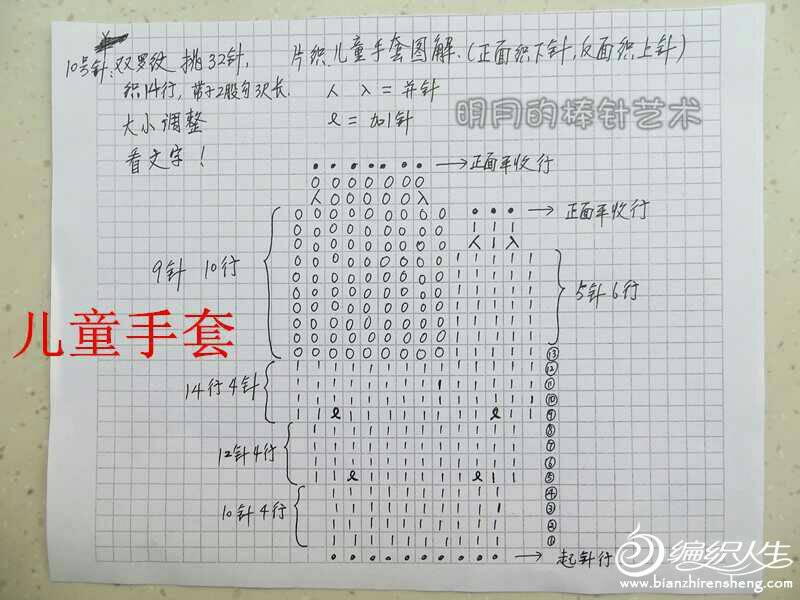 10号针:双罗纹 挑32针, 片织儿童手套图解.(正面织下针,反面织上针)
织14行,带子2股勾3尺长. 人 入 = 并针
大小调整 ℓ = 加1针
明月的棒针艺术
看文字!
→正面平收行
→ 正面平收行
9针 10行
5针6行
儿童手套
⑬
⑫
14行4针
⑪
⑩
⑨
⑧
⑦
12针4行
⑥
⑤
④
10针4行
③
②
①
→ 起针行
编织人生
www.bianzhirensheng.com